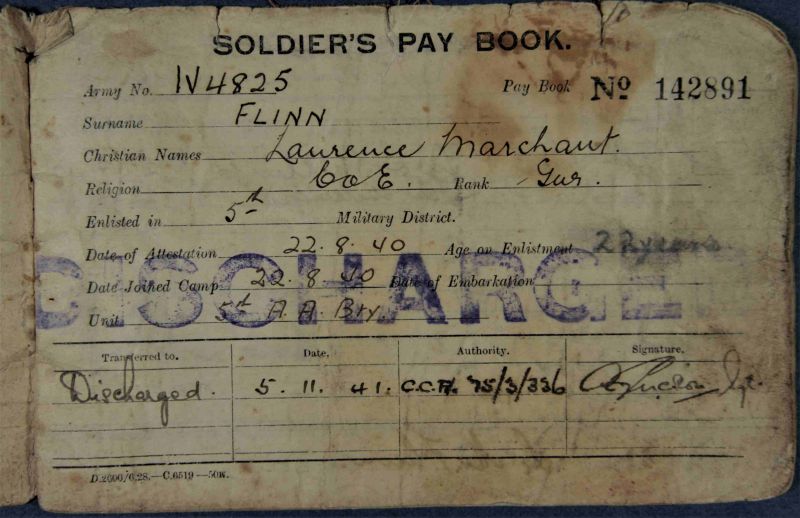 SOLDIER'S PAY BOOK.
Army No. W4825 Pay Book No 142891
Surname FLINN
Christian Names Laurence Marchant.
Religion C of E. Rank Gnr.
Enlisted in 5th Military District.
Date of Attestation 22.8.40 Age on Enlistment 22 years
Date Joined Camp 22.8.40 Date of Embarkation
DISCHARGE
Unit 5th A.A. Bty.
Transferred to. Date. Authority. Signature.
Discharged. 5.11.41. C.C.R. 75/3/336 Sgt.
D.2000/6.28.—C.6519—50M.